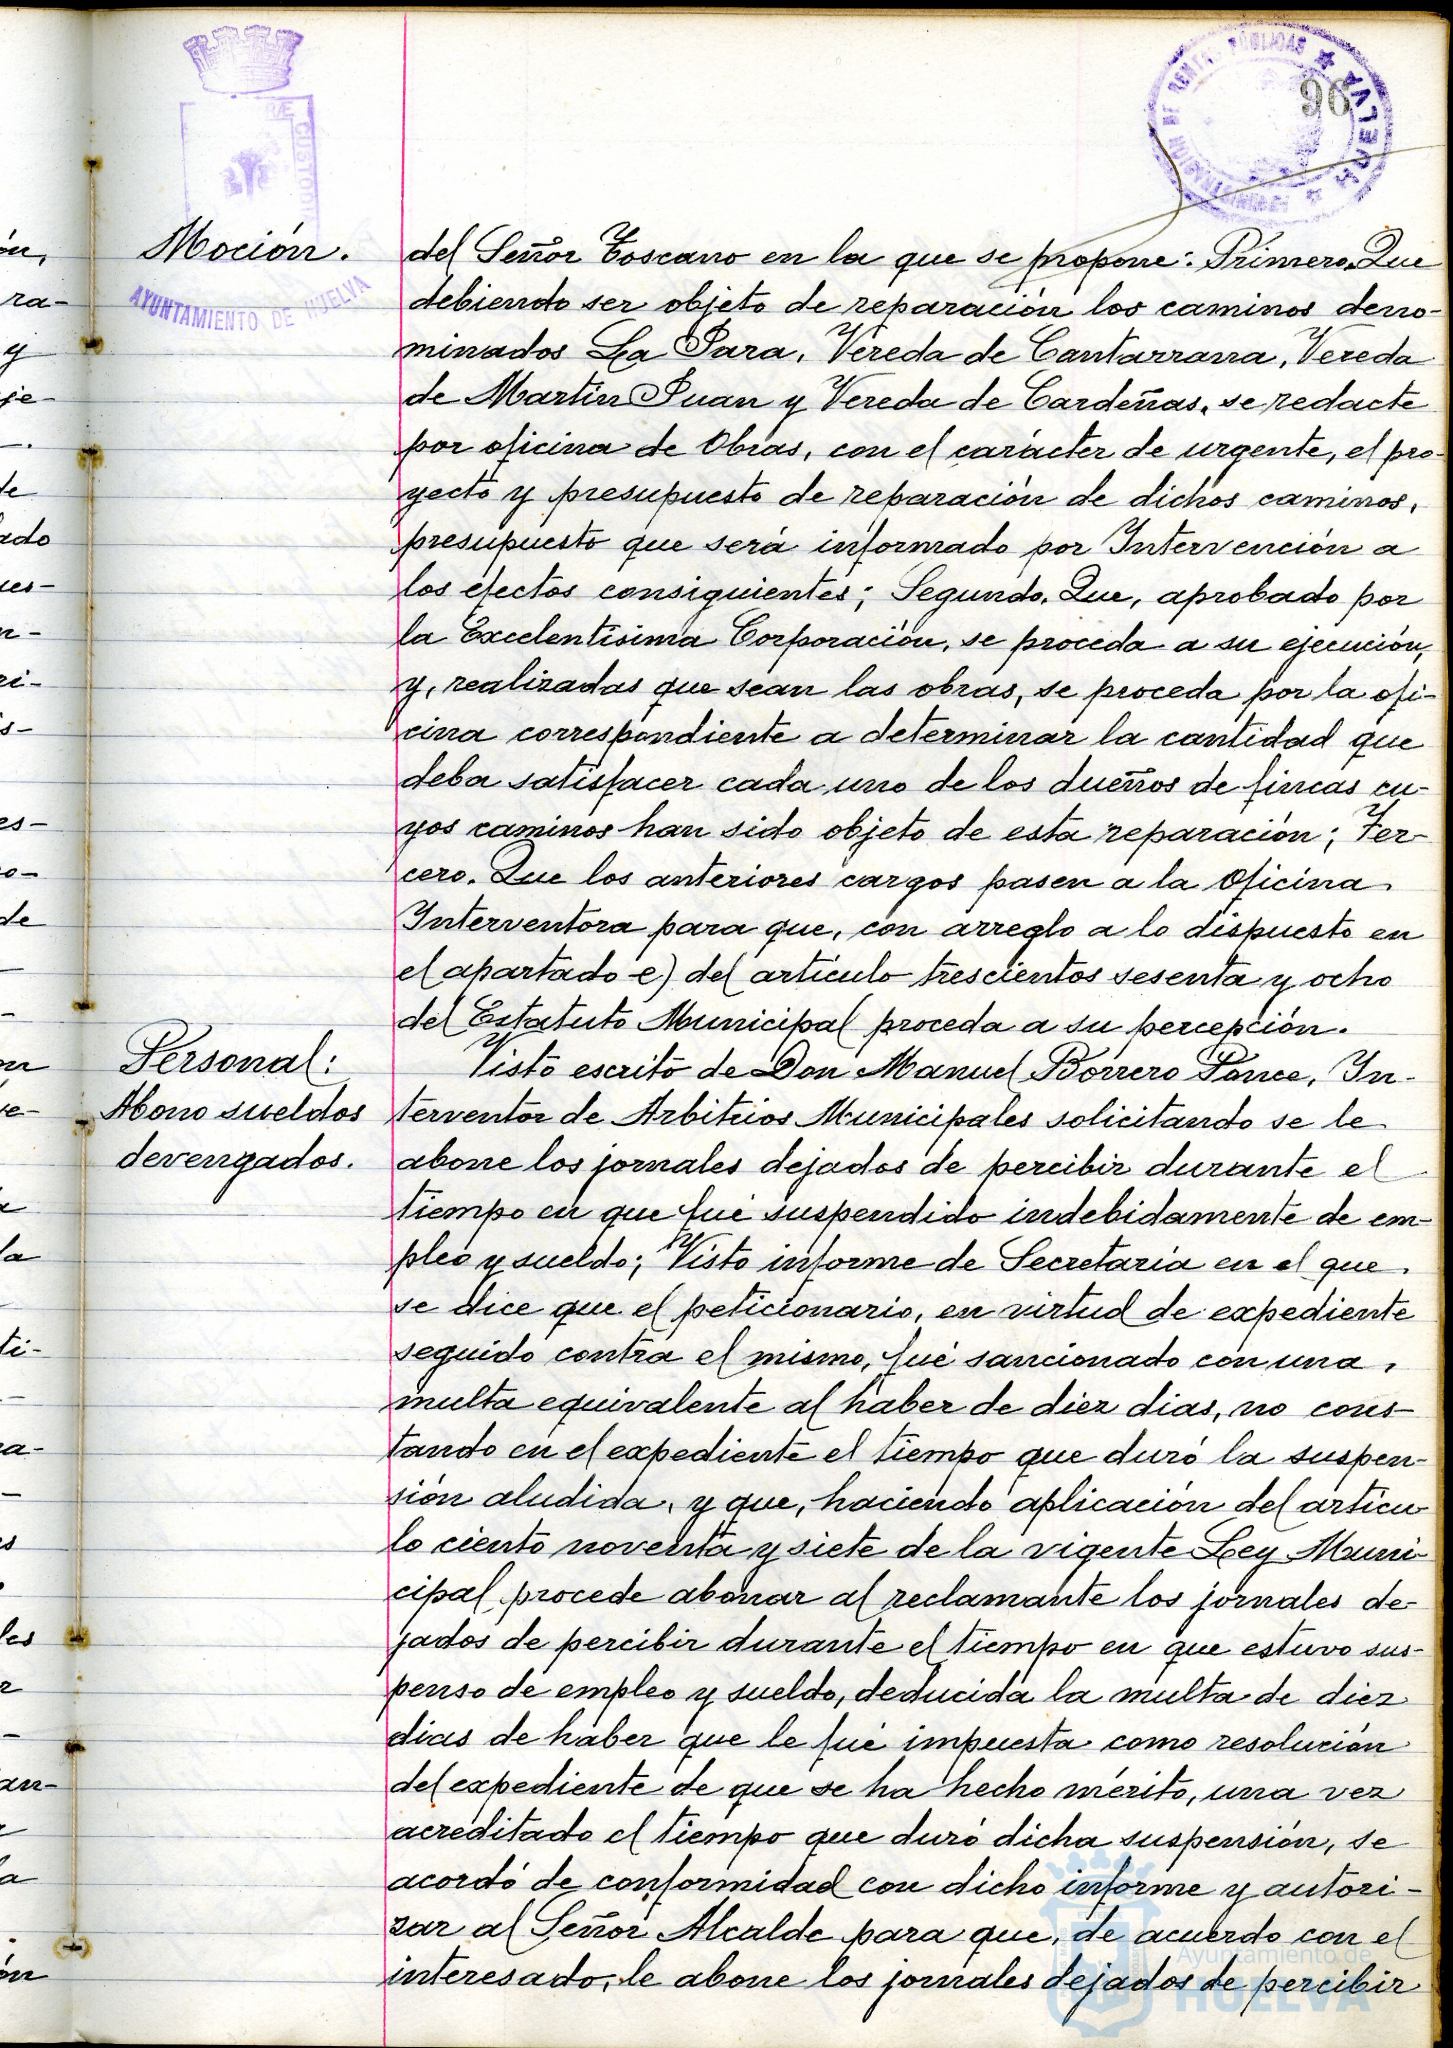 96
Moción.
AYUNTAMIENTO DE HUELVA
del Señor Toscano en la que se propone: Primero. Que
debiendo ser objeto de reparación los caminos deno-
minados La Jara, Vereda de Cantarrana, Vereda
de Martín Juan y Vereda de Cardeñas, se redacte
por oficina de Obras, con el carácter de urgente, el pro-
yecto y presupuesto de reparación de dichos caminos,
presupuesto que será informado por Intervención a
los efectos consiguientes; Segundo. Que, aprobado por
la Excelentísima Corporación, se proceda a su ejecución,
y, realizadas que sean las obras, se proceda por la ofi-
cina correspondiente a determinar la cantidad que
deba satisfacer cada uno de los dueños de fincas cu-
yos caminos han sido objeto de esta reparación; Ter-
cero. Que los anteriores cargos pasen a la Oficina
Interventora para que, con arreglo a lo dispuesto en
el apartado e) del artículo trescientos sesenta y ocho
del Estatuto Municipal proceda a su percepción.
Personal:
Abono sueldos
devengados.
Visto escrito de Don Manuel Borrero Ponce, In-
terventor de Arbitrios Municipales solicitando se le
abone los jornales dejados de percibir durante el
tiempo en que fué suspendido indebidamente de em-
pleo y sueldo; Visto informe de Secretaría en el que
se dice que el peticionario, en virtud de expediente
seguido contra el mismo, fué sancionado con una
multa equivalente al haber de diez dias, no cons-
tando en el expediente el tiempo que duró la suspen-
sión aludida, y que, haciendo aplicación del artícu
lo ciento noventa y siete de la vigente Ley Muni-
cipal, procede abonar al reclamante los jornales de-
jados de percibir durante el tiempo en que estuvo sus-
penso de empleo y sueldo, deducida la multa de diez
dias de haber que le fué impuesta como resolución
del expediente de que se ha hecho mérito, una vez
acreditado el tiempo que duró dicha suspensión, se
acordó de conformidad con dicho informe y autori-
zar al Señor Alcalde para que, de acuerdo con el
interesado, le abone los jornales dejados de percibir
Ayuntamiento de
HUELVA